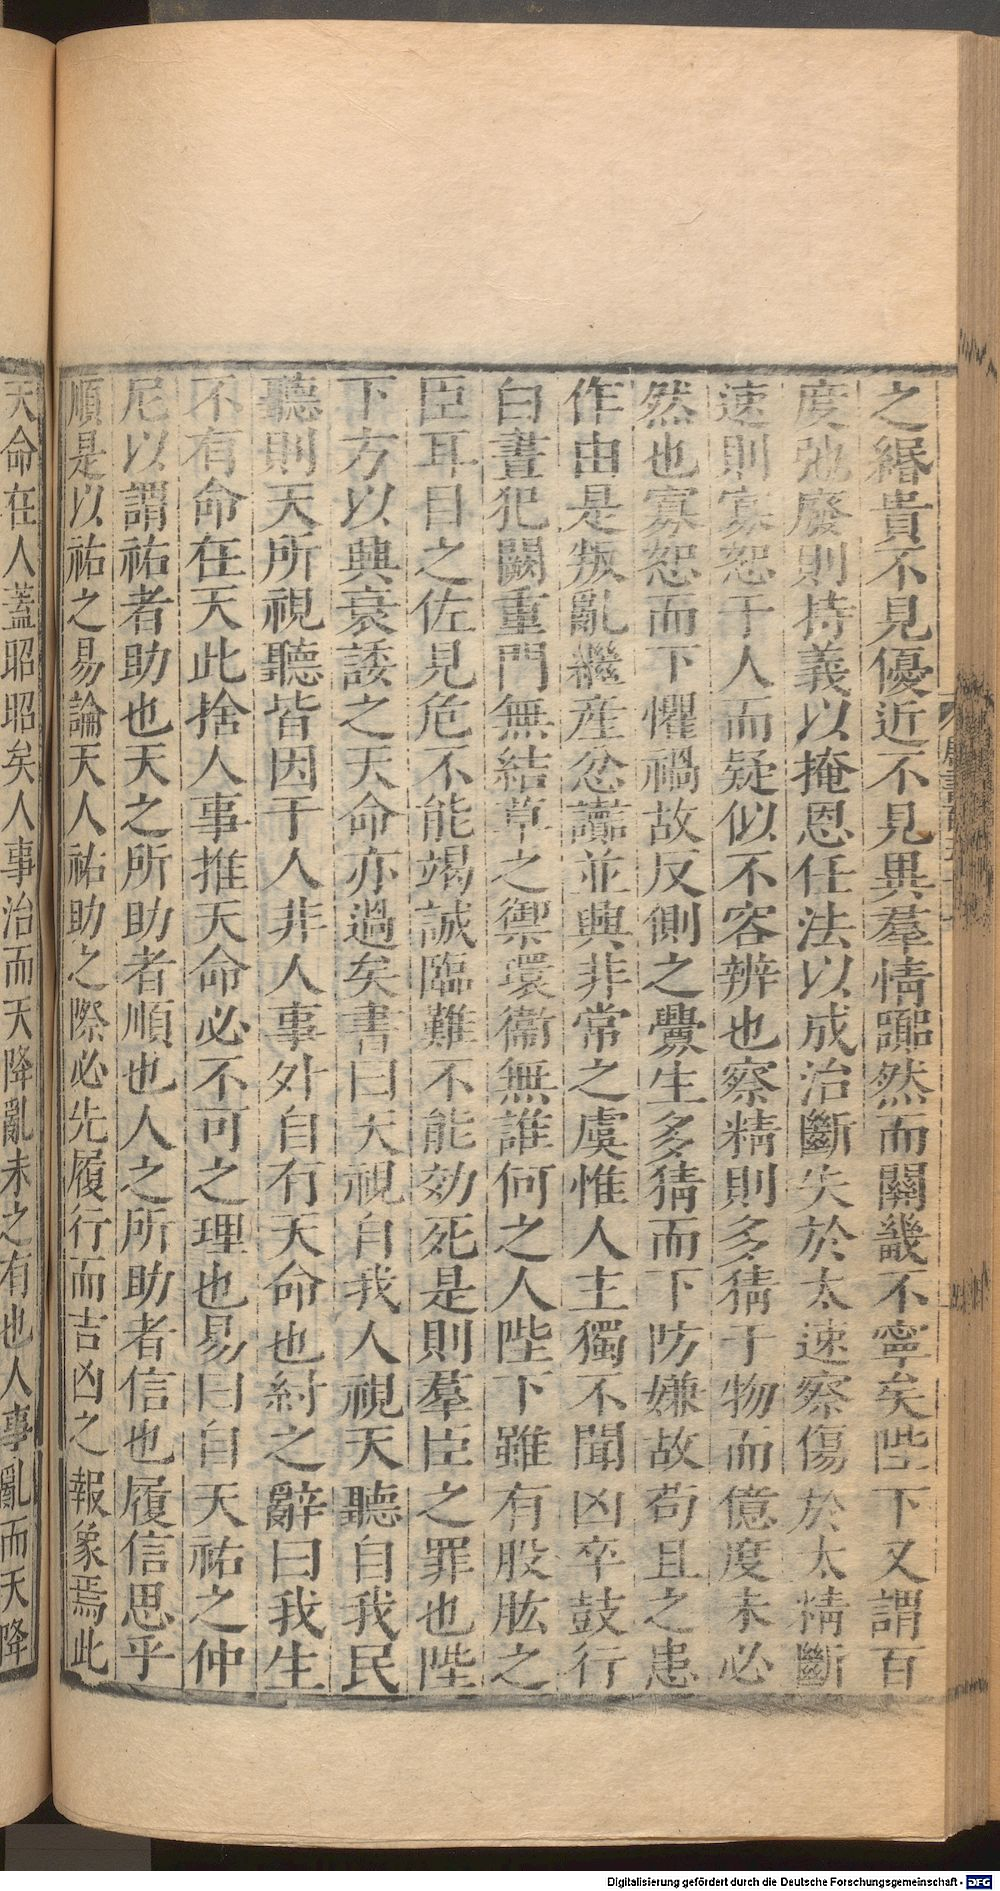 之緡貴不見優近不見異羣情嚻然而關畿不寧矣陛下又謂百
度弛廢則持義以掩恩任法以成治斷失於太速察傷於太精斷
速則寡恕于人而疑似不容辨也察精則多猜于物而億度未必
然也寡恕而下懼禍故反側之釁生多猜而下防嫌故苟且之患
作由是叛亂繼産忿讟並興非常之虞惟人主獨不聞凶卒鼓行
白晝犯闕重門無結草之禦環衞無誰何之人陛下雖有股肱之
臣耳目之佐見危不能竭誠臨難不能効死是則羣臣之罪也陛
下方以興衰諉之天命亦過矣書曰天視自我人視天聽自我民
聽則天所視聽皆因于人非人事外自有天命也紂之辭曰我生
不有命在天此捨人事推天命必不可之理也易曰自天祐之仲
尼以謂祐者助也天之所助者順也人之所助者信也履信思乎
順是以祐之易論天人祐助之際必先履行而吉凶之報象焉此
天命在人蓋昭昭矣人事治而天降亂未之有也人事亂而天降
Digitalisierung gefördert durch die Deutsche Forschungsgemeinschaft - DFG